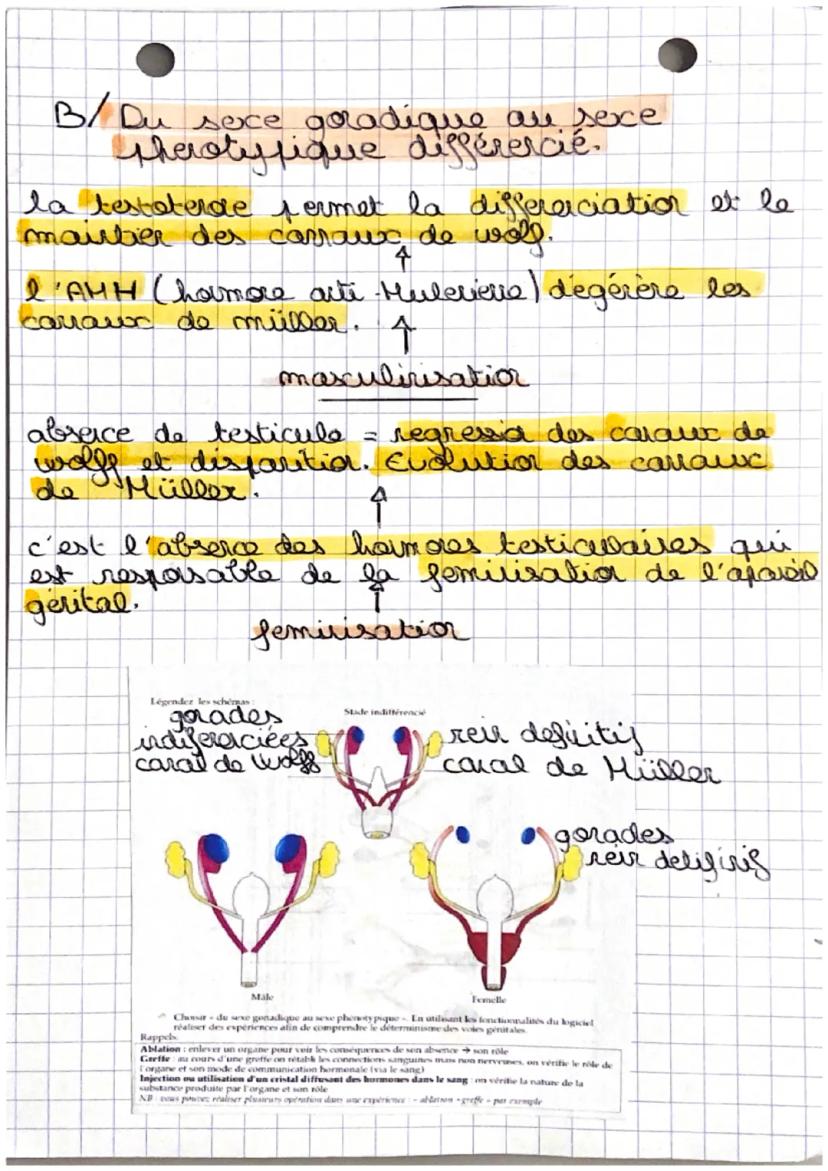 B/ Du sexe gonadique au sexe
phenotypique différencié.
la testoterone permet la differenciation et le
maintien des cannaux de wolf.
l'AMH (hormone anti-Mulerienne) dégénère les
cannaux de müller.
masculinisation
absence de testicule = regression des canaux de
wolff et disparition. Evolution des cannaux
de Müller.
c'est l'absence des hormones testiculaires qui
est responsable de la feminisation de l'apareil
génital.
feminisation
Légendez les schémas :
Stade indifférencié
gonades
indiferenciées
canal de Wolff
rein definitif
canal de Müller
gonades
rein definitif
Mâle
Femelle
Choisir « du sexe gonadique au sexe phénotypique ». En utilisant les fonctionnalités du logiciel
réaliser des expériences afin de comprendre le déterminisme des voies génitales.
Rappels:
Ablation : enlever un organe pour voir les conséquences de son absence → son rôle
Greffe : au cours d'une greffe on rétablit les connections sanguines mais non nerveuses, on vérifie le rôle de
l'organe et son mode de communication hormonale (via le sang)
Injection ou utilisation d'un cristal diffusant des hormones dans le sang : on vérifie la nature de la
substance produite par l'organe et son rôle
NB : vous pouvez réaliser plusieurs opération dans une expérience : « ablation +greffe » par exemple